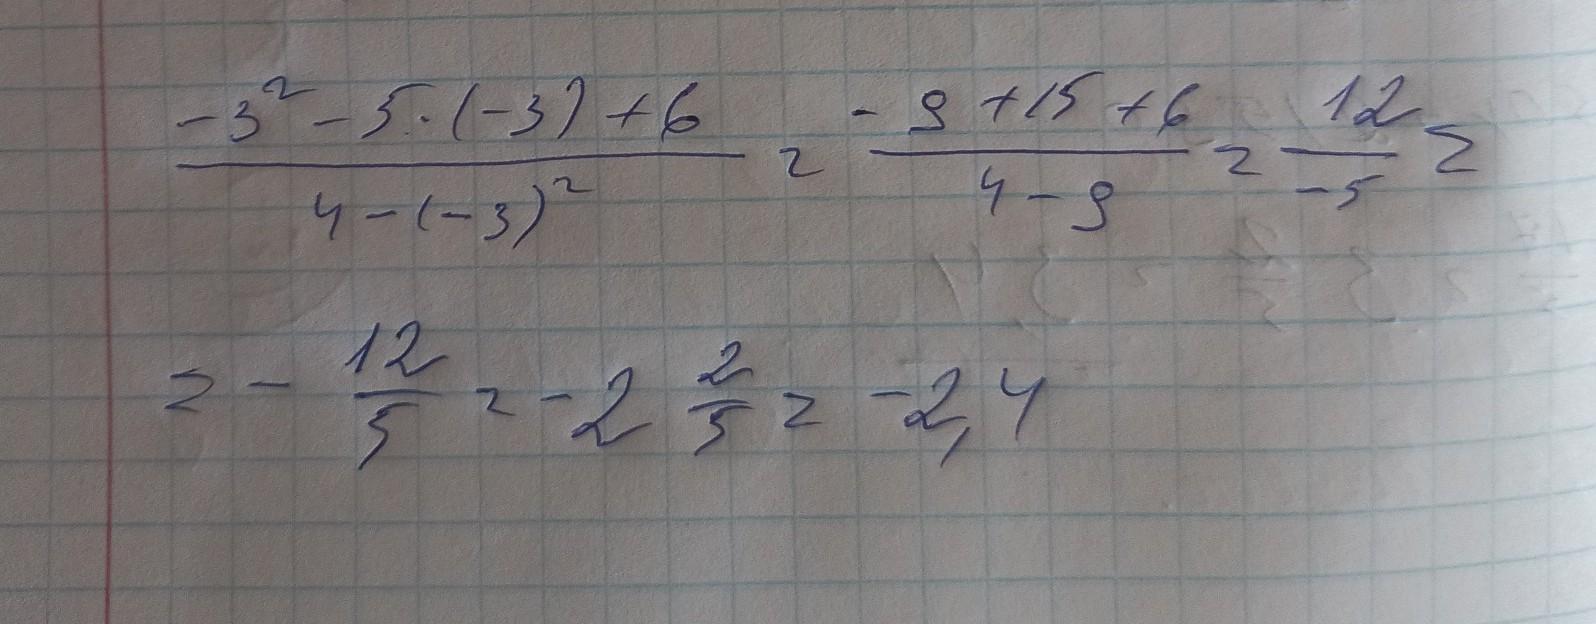 (-3² - 5·(-3) + 6)/(4 - (-3)²) = (-9 + 15 + 6)/(4 - 9) = 12/(-5) =
= - 12/5 = -2 2/5 = -2,4